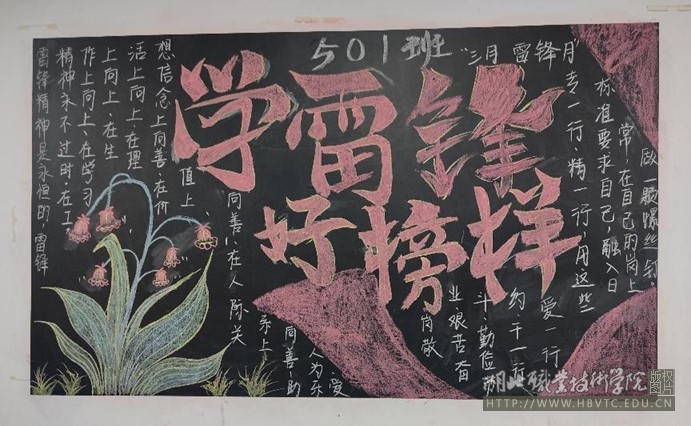 501班
学雷锋
好榜样
雷锋精神是永恒的，雷锋
精神永不过时。在工
作上向上、在学习
上向上、在生
活上向上、在理
想信念上向善、在价
值上
向善、在人际关
系上
向善、助
人为乐、
爱
岗敬
业艰苦奋
斗勤俭
约干一行
爱一行
"三月 雷锋月"
专一行、精一行，用这些
标准要求自己，融入日
常，在自己的岗上
做一颗螺丝钉。
湖北職業技術学院
版权
图片
HTTP://WWW.HBVTC.EDU.CN